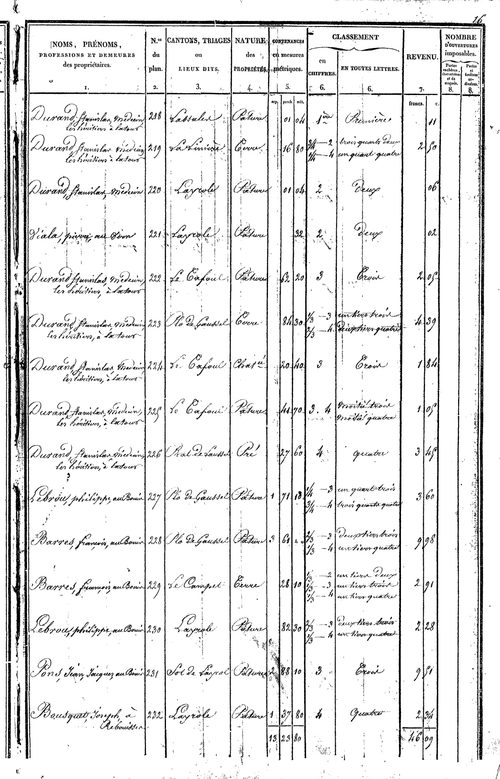 26
NOMS, PRÉNOMS,
PROFESSIONS ET DEMEURES
des propriétaires.
N.os
du
plan.
CANTONS, TRIAGES
ou
LIEUX DITS.
NATURE
des
PROPRIÉTÉS.
CONTENANCES
EN MESURES
métriques.
CLASSEMENT
en
CHIFFRES.
EN TOUTES LETTRES.
REVENU.
NOMBRE
D'OUVERTURES
imposables.
1. 2. 3. 4. 5. 6. 6. 7. 8. 8.
francs. c.
Durand, Stanislas, médecin, 218 Pâture 01 04 1ère Première 11
les héritiers à Latour
Durand, Stanislas, médecin, 219 Terre 16 80 3/4 - 2 trois quarts deux 2 50
les héritiers à Latour 1/4 - 4 un quart quatre
Durand, Stanislas, médecin 220 Layrole Pâture 01 04 2 Deux 06
Viala, pierre, au 221 Layrole Pâture 32 2 Deux 02
Durand, Stanislas, médecin, 222 Le Cafoul Pâture 62 20 3 Trois 2 05
les héritiers, à Latour
Durand, Stanislas, médecin, 223 Pla de Gaussel Terre 84 30 1/3 - 3 un tiers trois 4 39
les héritiers, à Latour 2/3 - 4 deux tiers quatre
Durand, Stanislas, médecin, 224 Le Cafoul 20 40 3 Trois 1 84
les héritiers, à Latour
Durand, Stanislas, médecin, 225 Le Cafoul Pâture 41 70 3. 4 moitié trois 1 05
les héritiers, à Latour moitié quatre
Durand, Stanislas, médecin, 226 Pré 27 60 4 quatre 3 45
les héritiers, à Latour
?
Lebrou, philippe, au Bouis 227 Pla de Gaussel Pâture 1 71 1/4 - 3 un quart trois 3 60
3/4 - 4 trois quarts quatre
Barres, françois, au Bouis 228 Pla de Gaussel Pâture 3 61 2/3 - 3 Deux tiers trois 9 98
1/3 - 4 un tiers quatre
Barres, françois, au Bouis 229 Le Campel Terre 28 10 1/3 - 2 un tiers deux 2 91
1/3 - 3 un tiers trois
1/3 - 4 un tiers quatre
Lebrou, philippe, au Bouis 230 Layrole Pâture 82 30 2/3 - 3 deux tiers trois 2 28
1/3 - 4 un tiers quatre
Pons, Jean Jacques au Bouis 231 Sol de Layrol Pâture 2 88 10 3 Trois 9 51
Bousquat, Joseph, à 232 Layrole Pâture 1 37 80 4 Quatre 2 34
13 23 80 46 09